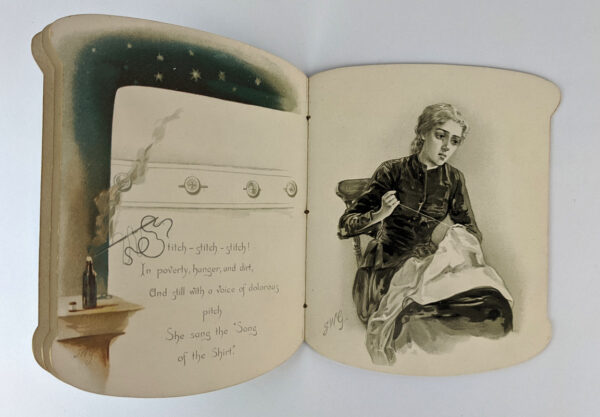 Stitch – stitch – stitch!
In poverty, hunger, and dirt,
And still with a voice of dolorous
pitch
She sang the "Song
of the Shirt."